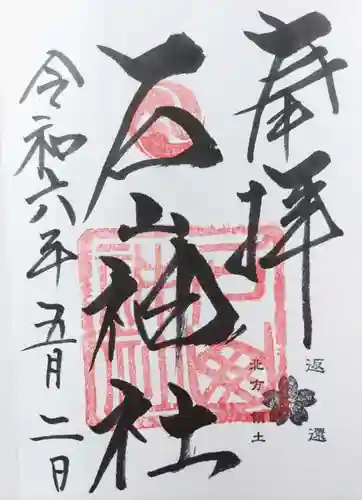 奉拝
石山神社
令和六年五月二日
返還
北方領土